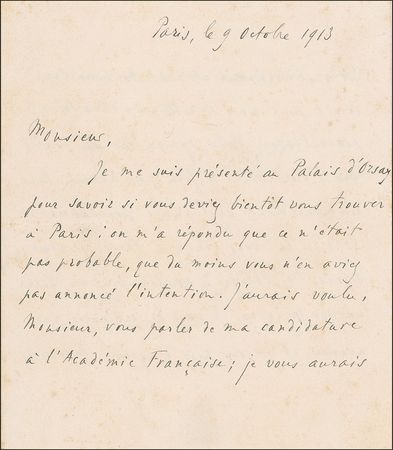 Paris, le 9 Octobre 1913
Monsieur,
Je me suis présenté au Palais d'Orsay
pour savoir si vous deviez bientôt vous trouver
à Paris ; on m'a répondu que ce n'était
pas probable, que du moins vous n'en aviez
pas annoncé l'intention. J'aurais voulu,
Monsieur, vous parler de ma candidature
à l'Académie Française ; je vous aurais